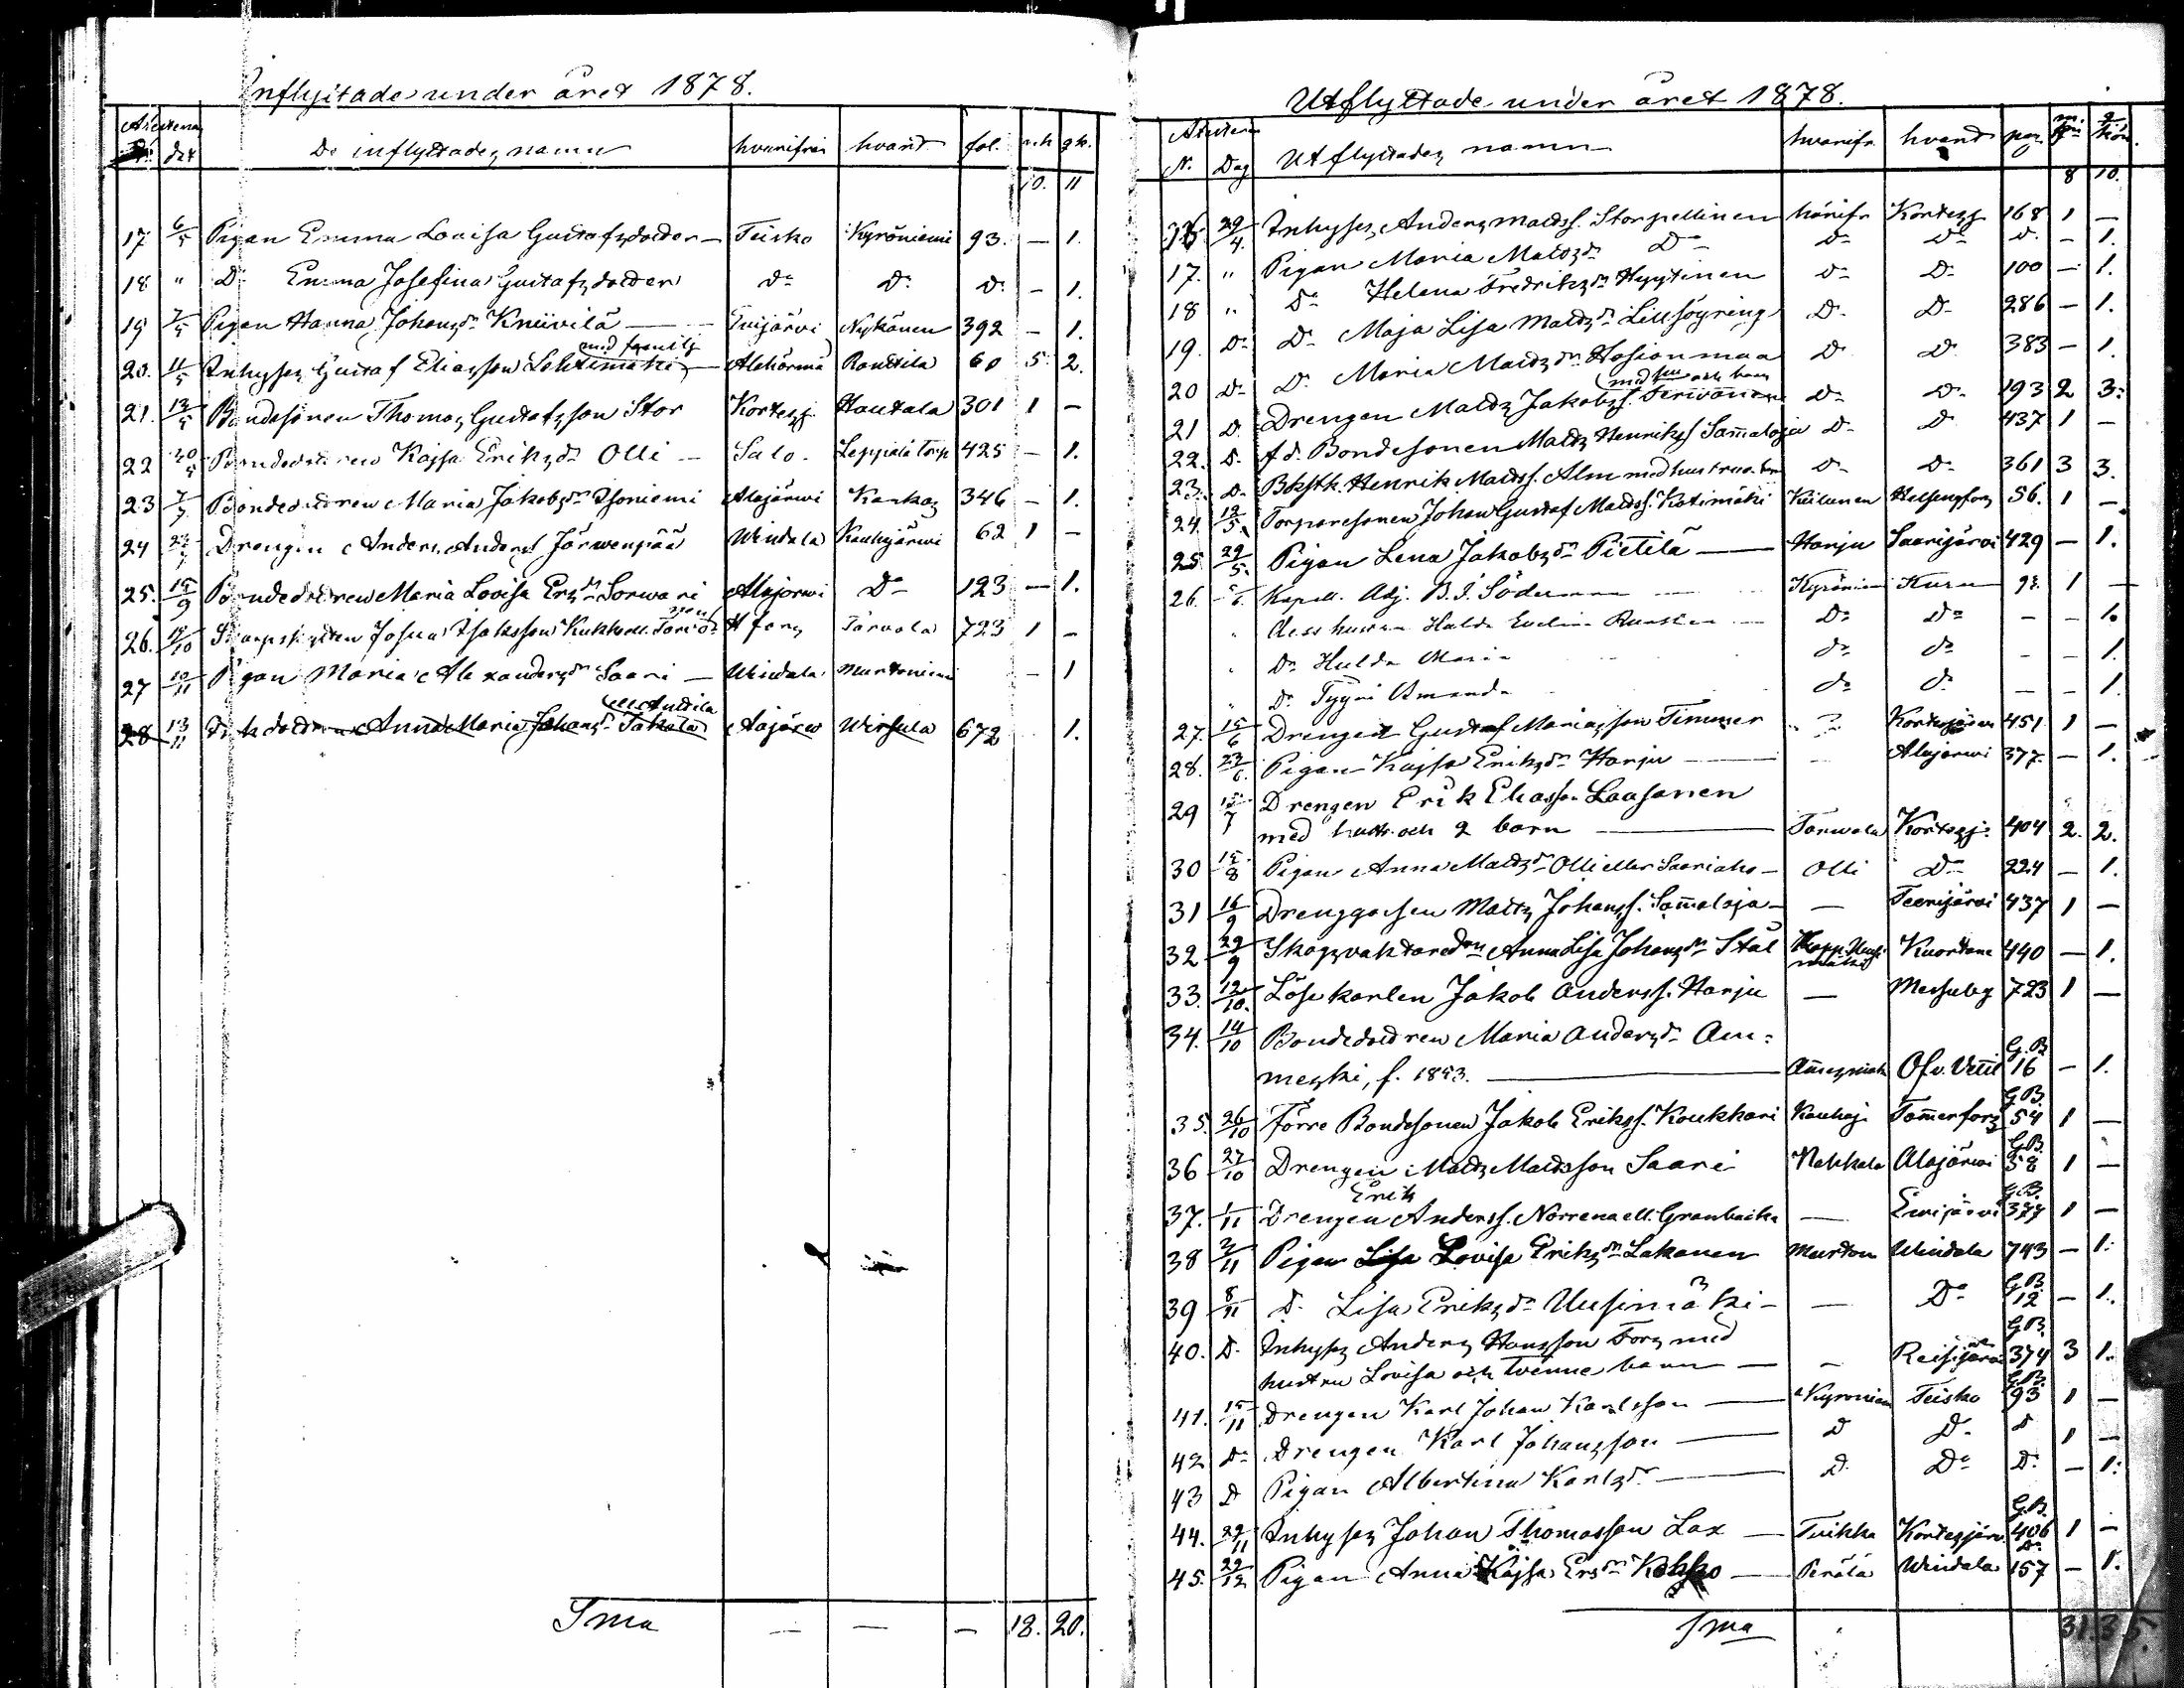 Inflyttade under året 1878.
De inflyttades namn hvarifrån hvart fol. m.k. q.k.
10. 11
17 6/5 Pigan Emma Lovisa Gustafsdotter — Teisko Kyröniemi 93. — 1.
18 " Do Emma Josefina Gustafsdotter do do do — 1.
19 7/5 Pigan Hanna Johansdr Kniivilä — Evijärvi Nykänen 392 — 1.
20. 11/5 Inhyses Gustaf Eliasson Lehtimäki med familj Alahärmä Rantila 60 5. 2.
21. 13/5 Bondesonen Thomas Gustafsson Stor Kortesj. Hautala 301 1 —
22 20/5 Bondedottren Kajsa Eriksdr Olli — Salo. Leppälä torp 425 — 1.
23 7/7 Bondedottren Maria Jakobsdr Isoniemi Alajärvi Kankas 346 — 1.
24 Drengen Anders Anderss. Järvenpää Vindala Kauhajärvi 62 1 —
25. 15/9 Bondedottren Maria Lovisa Ersdr Sorvari Alajärvi Do 123 — 1.
26. /10 Skarpskytten Josua Isaksson H:fors Tarvola 723 1 —
27 10/11 Pigan Maria Alexandersdr Saari — Vindala Murtoniemi — 1
28 13/11 Anna Maria Johansdr Takala ell. Antila Alajärvi Wirsula 672 1.
Sma — — — 18. 20.
Utflyttade under året 1878.
N. Dag Utflyttades namn hvarifr. hvart pag. m. kön q. kön
8 10.
16 29/4. Inhyses Anders Mattss. Storpellinen härifr. Kortesj. 168 1 —
17. " Pigan Maria Mattsdr Do do do do — 1.
18 " Do Helena Fredriksdr Hyytinen do Do 100 — 1.
19. Do Do Maja Lisa Mattsdr Lillsöyring Do Do 286 — 1.
20 Do Do Maria Mattsdr Hosionmaa Do Do 383 — 1.
21 D. Drengen Matts Jakobss. med hu och barn Do Do 193 2 3.
22. D. f.d. Bondesonen Matts Henrikss. Sammaloja Do Do 437 1 —
23. Do Henrik Mattss. Alm med hustru o. barn Do Do 361 3 3.
24. 12/5. Torparesonen Johan Gustaf Mattss. Kotimäki Helsingfors 56. 1 —
25. 22/5. Pigan Lena Jakobsdr Pietilä — Harju Saarijärvi 429 — 1.
26. Kapell. Adj. B. I. Söderman Kyröniemi Kuru 93 1 —
" dess hustru Hulda Evelina Do Do — — 1.
" Do Hulda Maria do do — — 1.
" Do Tyyni Amanda do do — — 1.
27. 15/6 Drengen Gustaf Mariasson Timmer ? Kortesjärvi 451 1 —
28. 23/6. Pigan Kajsa Eriksdr Harju — Alajärvi 377 — 1.
29 15/7 Drengen Erik Eliasson Laasanen
med hustr. och 2 barn — Tarvola Kortesj. 404 2. 2.
30 15/8 Pigan Anna Mattsdr Olli eller Saariaho — Olli Do 224 — 1.
31 16/9 Drenggossen Matts Johanss. Sammaloja — — Teerijärvi 437 1 —
32 29/9 Skogsvaktaredrn Anna Lisa Johansdr Stål Kuortane 440 — 1.
33. 12/10. Lösekarlen Jakob Anderss. Harju — Messuby 723 1 —
34. 14/10 Bondedottren Maria Andersdr Am=
meski, f. 1853. — Ammesmäki Öfv. Vetil G.B. 16 — 1.
35. 26/10 Förre Bondesonen Jakob Erikss. Koukkari Kauhaj. Tammerfors G.B. 54 1 —
36 27/10 Drengen Matts Mattsson Saari Alajärvi G.B. 58 1 —
37. 1/11 Drengen Erik Anderss. Norrena ell. Granbacka — Evijärvi G.B. 377 1 —
38 2/11 Pigan Lovisa Eriksdr Lakanen Murton Vindala 743 — 1.
39 8/11 D. Lisa Eriksdr Uusimäki — — Do G.B. 12 — 1.
40. D. Inhyses Anders Hansson Fors med
hustru Lovisa och tvenne barn — — Reisijärvi G.B. 374 3 1.
41. 15/11 Drengen Karl Johan Karlsson — Kyröniem Teisko G.B. 93 1 —
42 Do Drengen Karl Johansson — D D. D 1 —
43 D Pigan Albertina Karlsdr — D. Do D. — 1.
44. 29/11 Inhyses Johan Thomasson Lax — Tuikka Kortesjärv. G.B. 406 1 —
45. 22/12 Pigan Anna Kajsa Ersdr — Perälä Vindala Do 157 — 1.
Sma 31. 35.